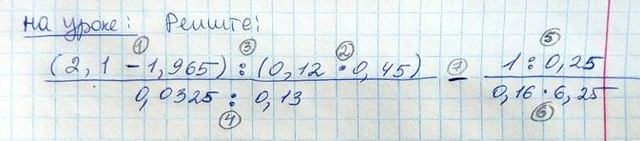 на уроке: Решите:
① ③ ② ⑤
(2,1 - 1,965) : (0,12 · 0,45) ⑦ 1 : 0,25
0,0325 : 0,13 - 0,16 · 6,25
④ ⑥